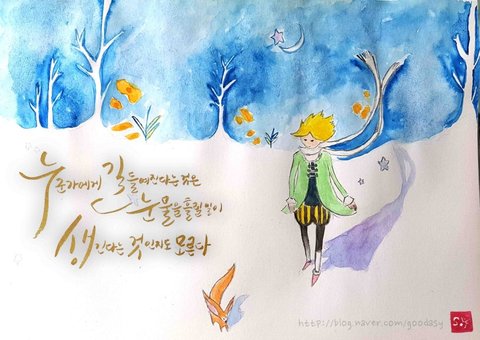 누군가에게 길들여진다는 것은
눈물을 흘릴 일이
생긴다는 것인지도 모른다
http://blog.naver.com/goodasy